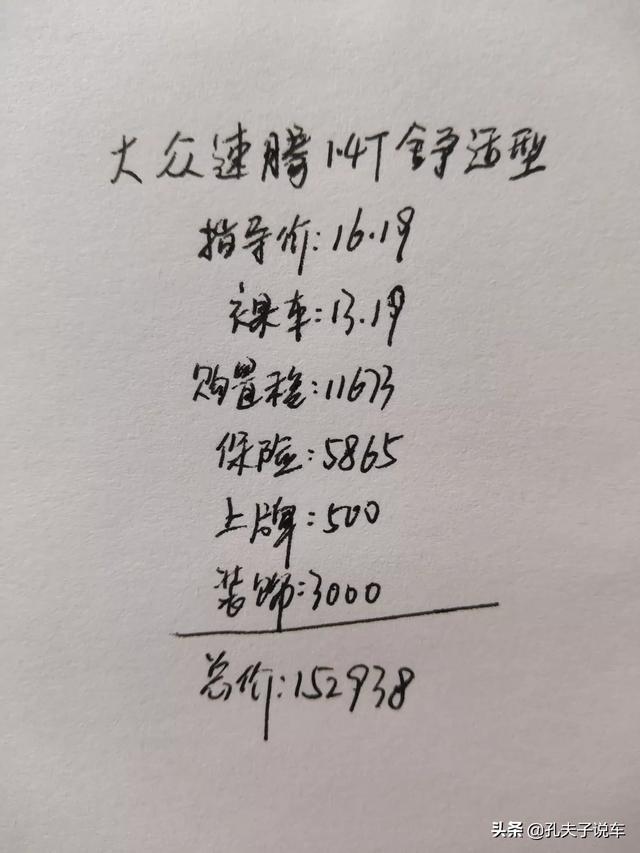 大众速腾1.4T舒适型
指导价:16.19
裸车:13.19
购置税:11673
保险:5865
上牌:500
装饰:3000
总价:152938
头条 @孔夫子说车